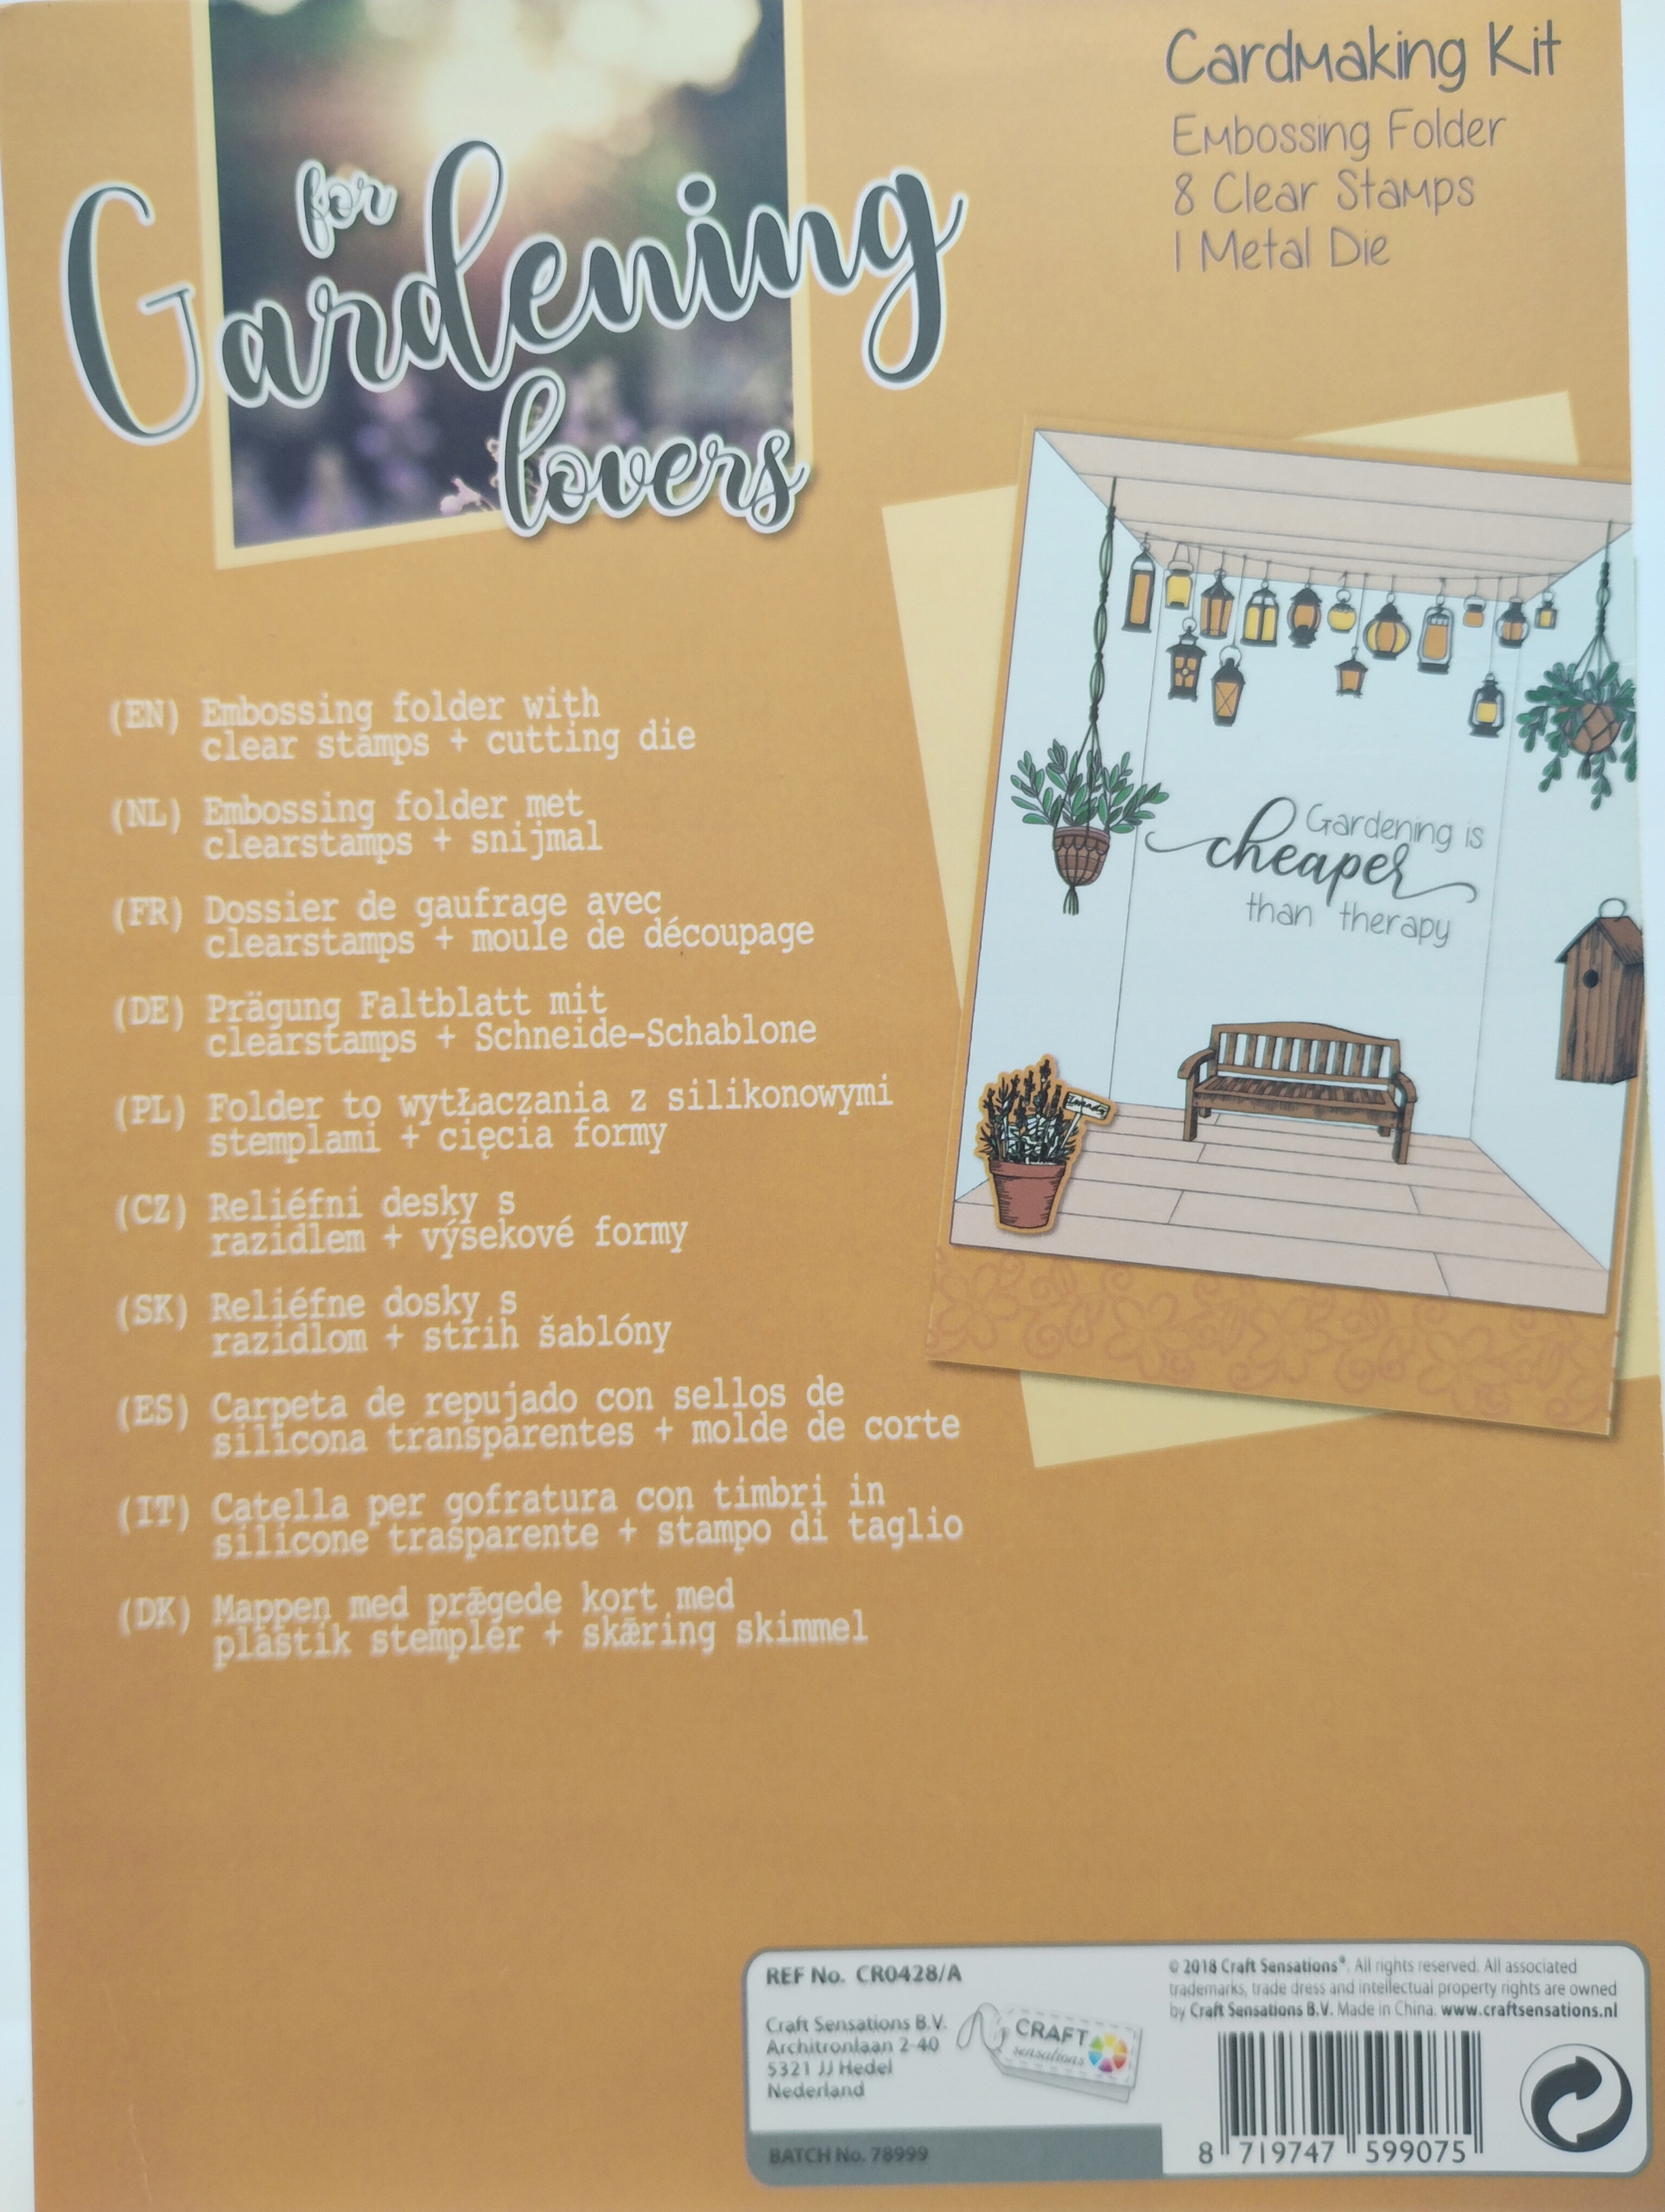 for
Gardening
lovers
Cardmaking Kit
Embossing Folder
8 Clear Stamps
1 Metal Die
(EN) Embossing folder with
clear stamps + cutting die
(NL) Embossing folder met
clearstamps + snijmal
(FR) Dossier de gaufrage avec
clearstamps + moule de découpage
(DE) Prägung Faltblatt mit
clearstamps + Schneide-Schablone
(PL) Folder to wytŁaczania z silikonowymi
stemplami + cięcia formy
(CZ) Reliéfni desky s
razidlem + výsekové formy
(SK) Reliéfne dosky s
razidlom + střih šablóny
(ES) Carpeta de repujado con sellos de
silicona transparentes + molde de corte
(IT) Catella per gofratura con timbri in
silicone trasparente + stampo di taglio
(DK) Mappen med prǣgede kort med
plastik stempler + skǣring skimmel
Gardening is
cheaper
than therapy
REF No. CR0428/A
Craft Sensations B.V.
Architronlaan 2-40
5321 JJ Hedel
Nederland
CRAFT
sensations
BATCH No. 78999
© 2018 Craft Sensations®. All rights reserved. All associated
trademarks, trade dress and intellectual property rights are owned
by Craft Sensations B.V. Made in China. www.craftsensations.nl
8 719747 599075